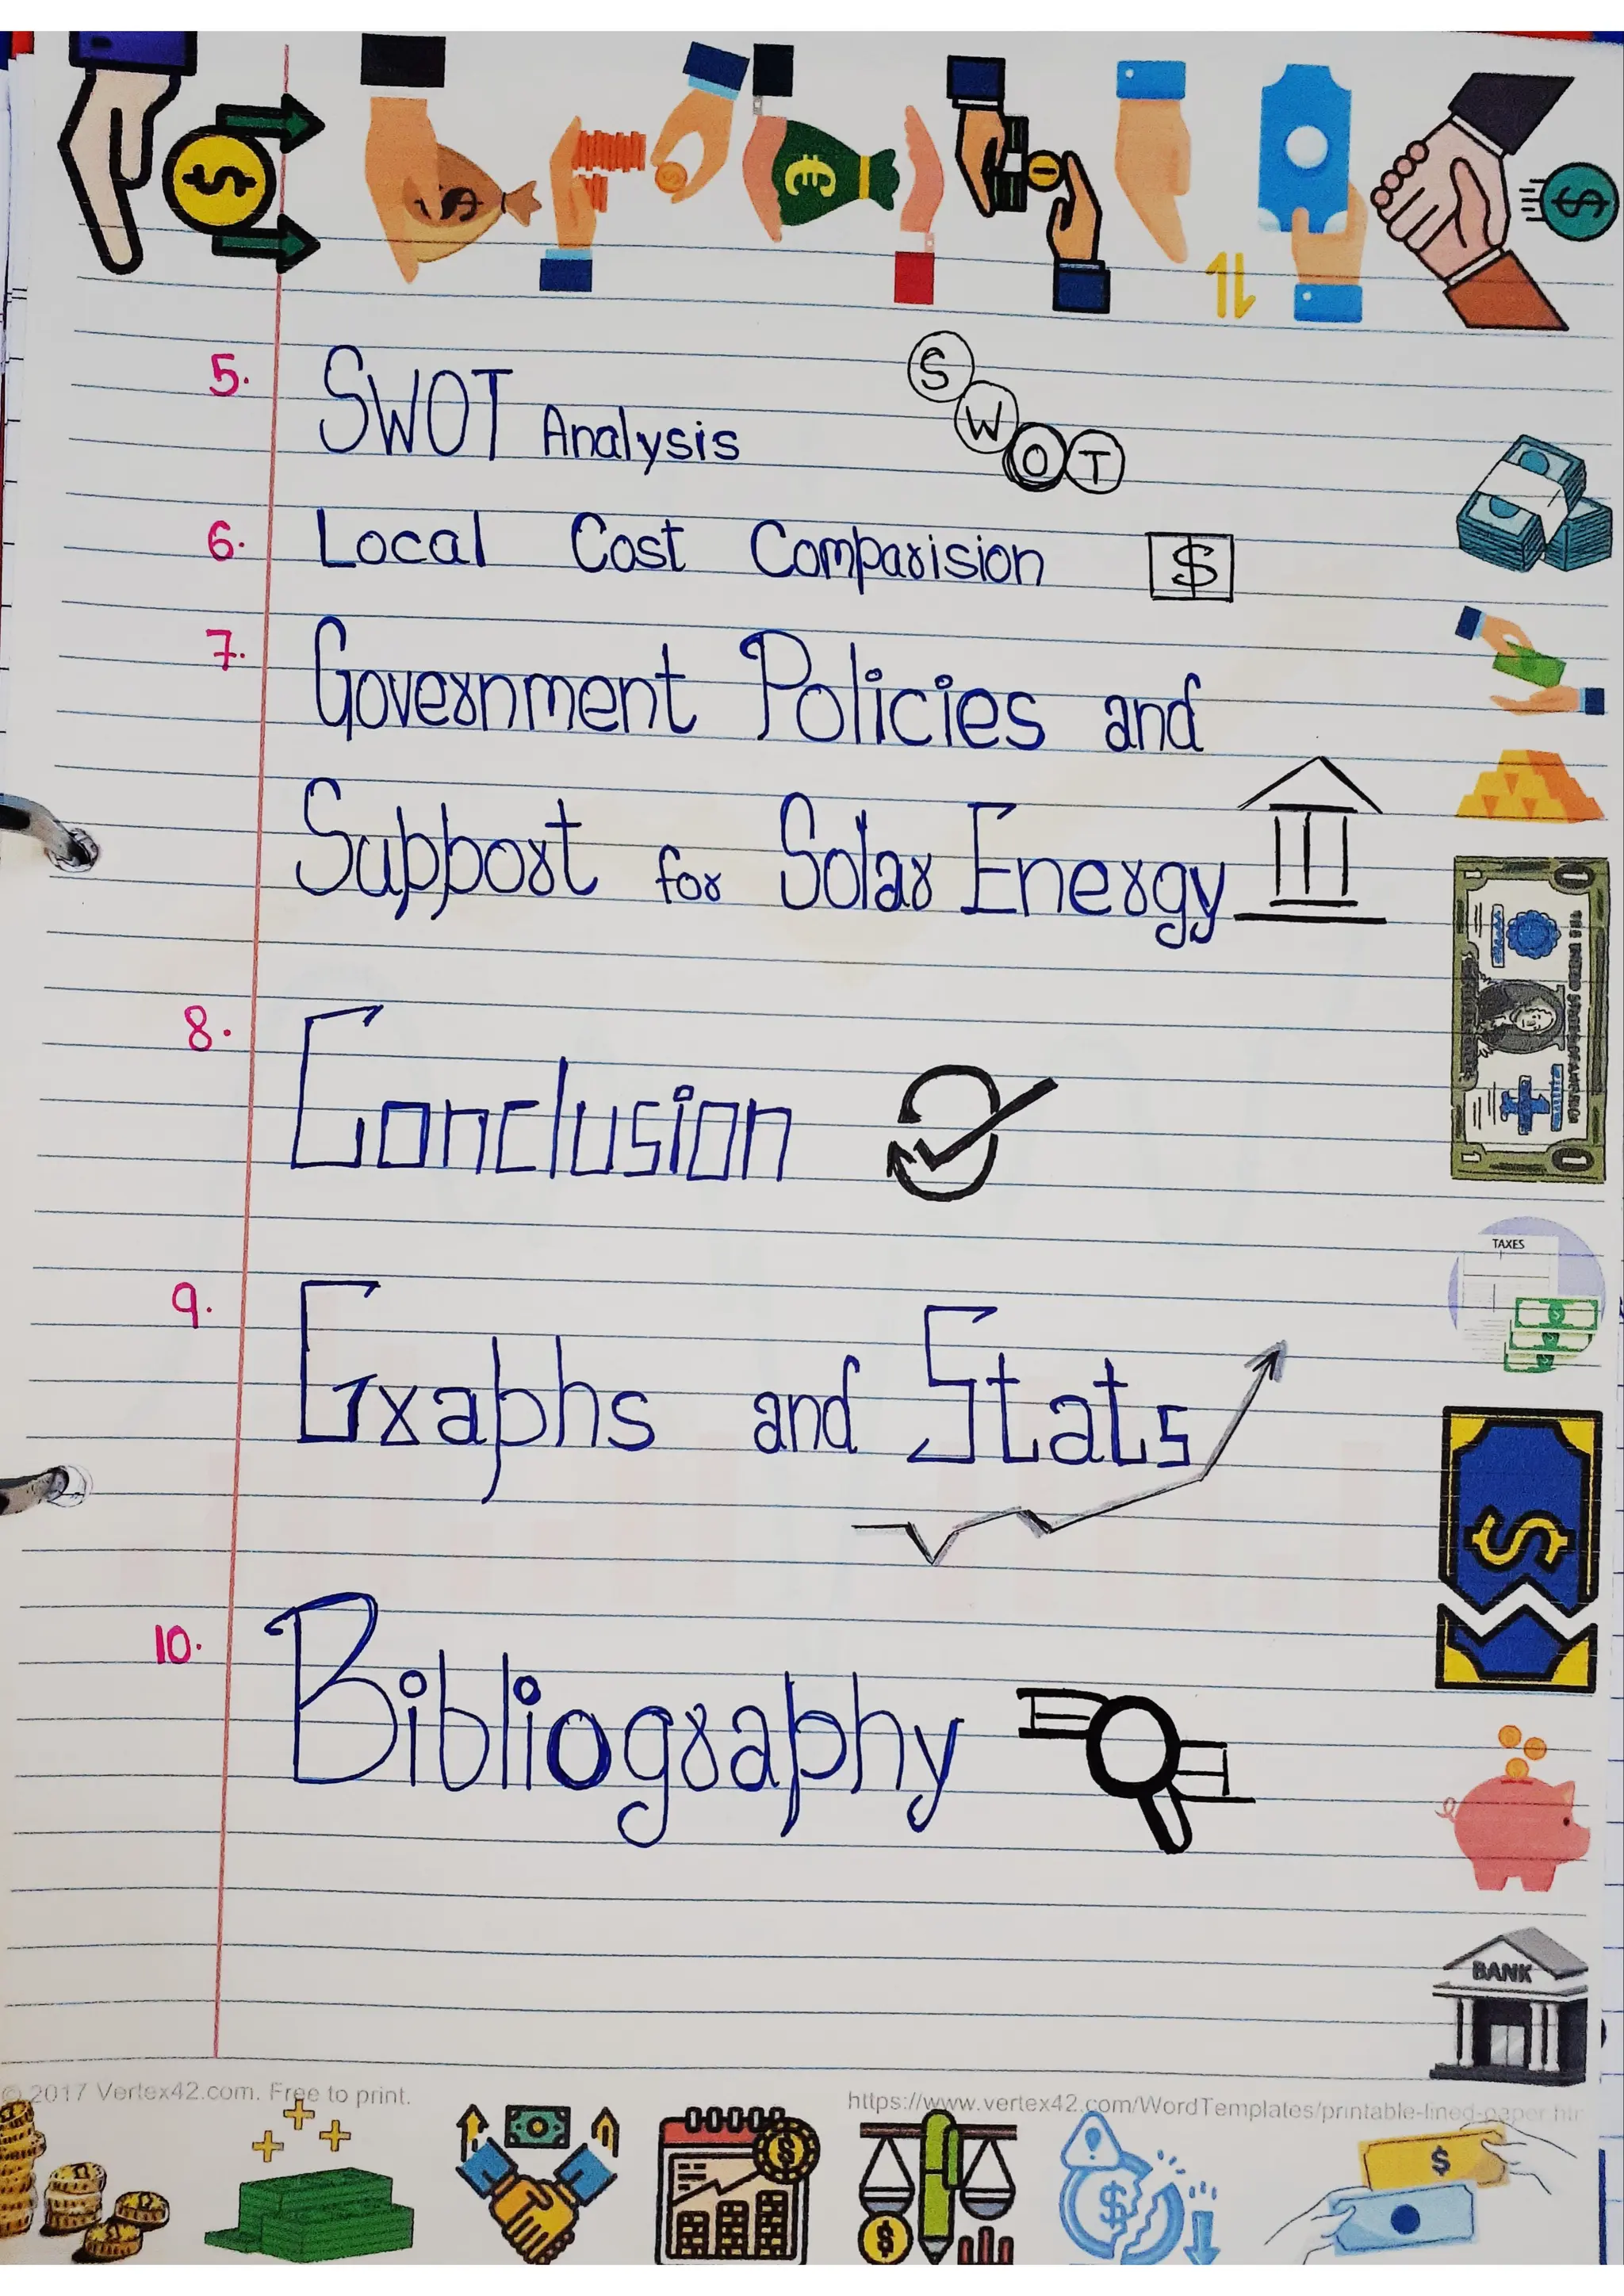 5. SWOT Analysis
S W O T
6. Local Cost Comparision $
7. Government Policies and
Support for Solar Energy
8. Conclusion
TAXES
9. Graphs and Stats
10. Bibliography
BANK
© 2017 Vertex42.com. Free to print. https://www.vertex42.com/WordTemplates/printable-lined-paper.html